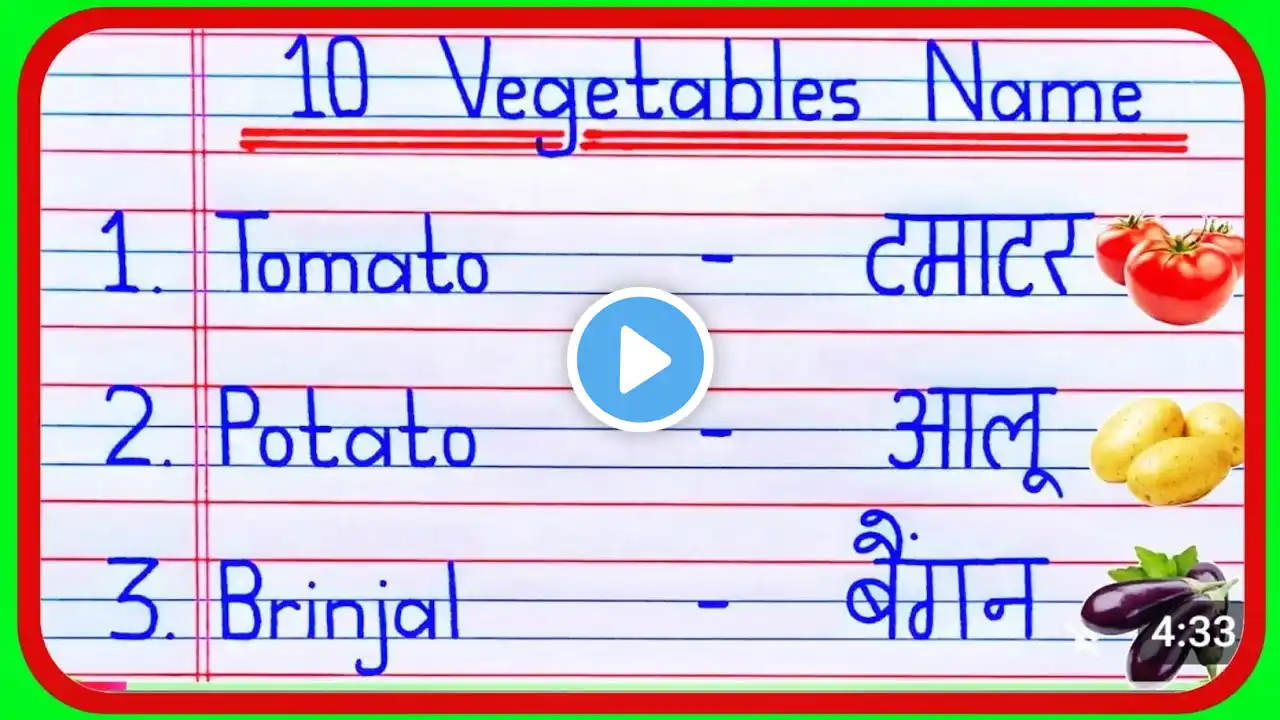 10 Vegetables Name
1. Tomato - टमाटर
2. Potato - आलू
3. Brinjal - बैंगन
4:33